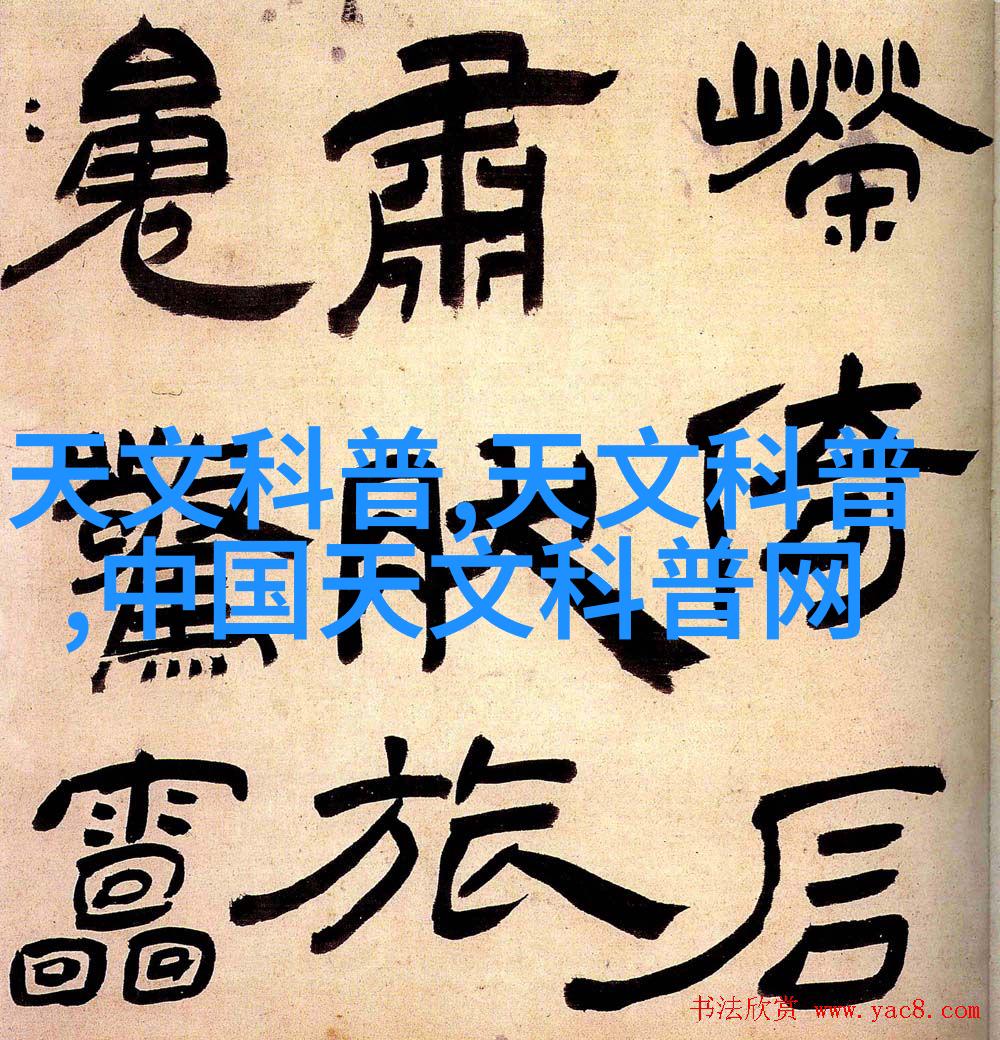 倚后
肅旅
驚靁
天文科普,天文科普
,中国天文科普网
书法欣赏 www.yac8.com